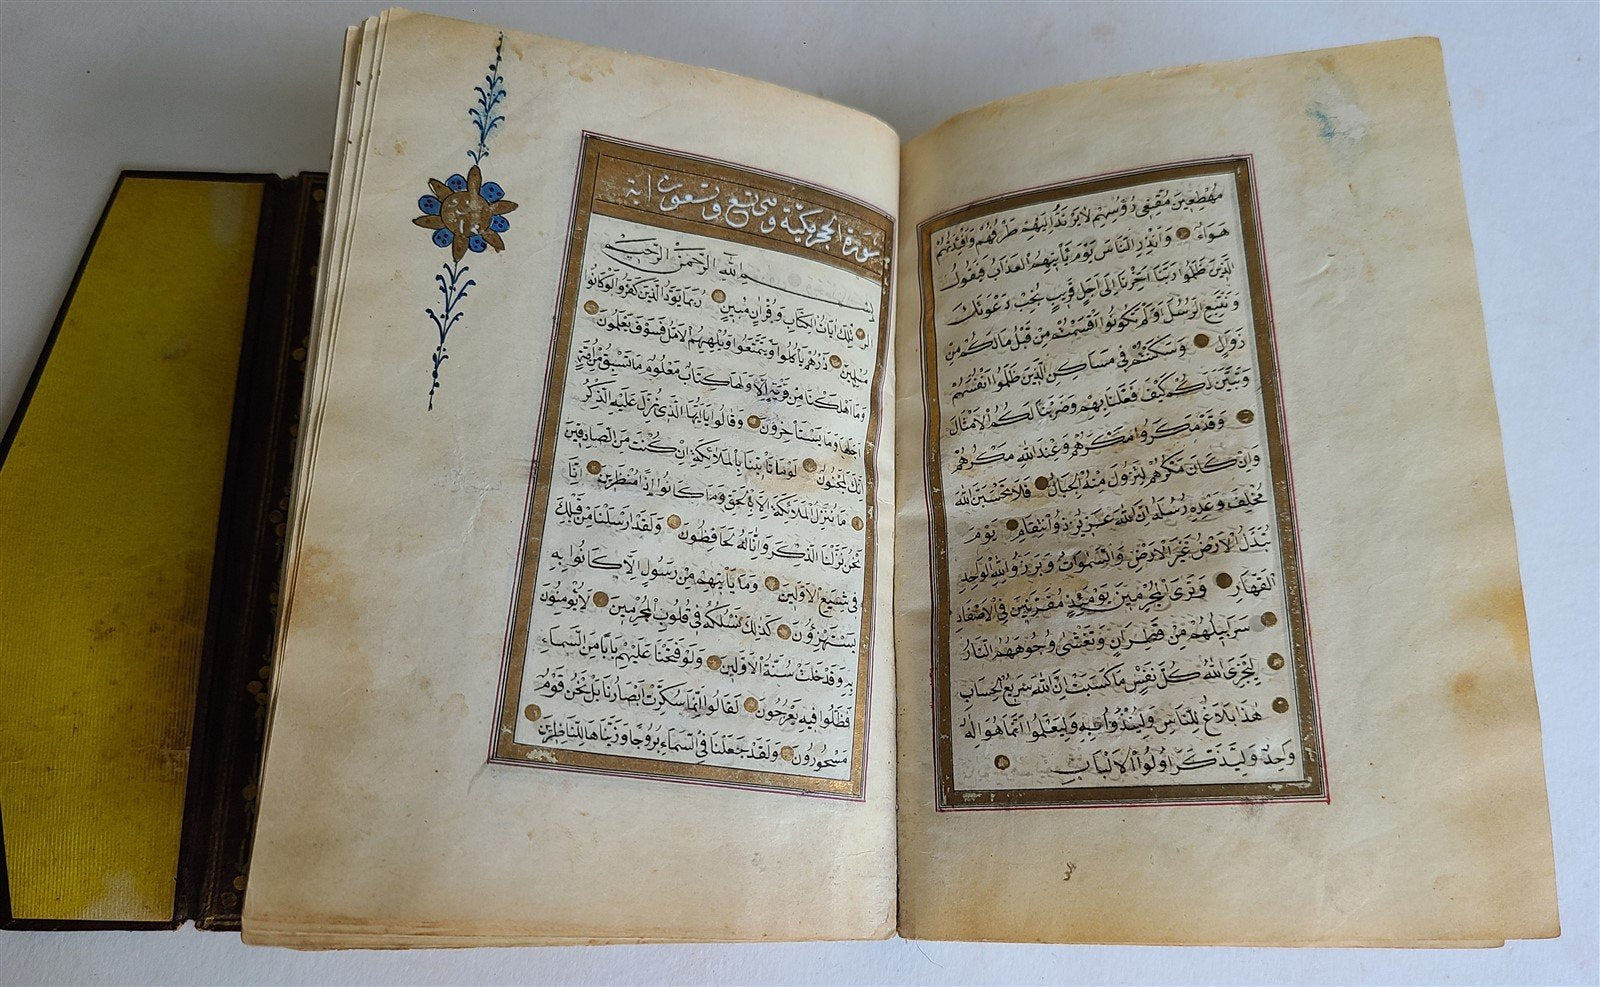 مُهْطِعِينَ مُقْنِعِى رُؤُسِهِمْ لَا يَرْتَدُّ اِلَيْهِمْ طَرْفُهُمْ وَاَفْئِدَتُهُمْ
هَوَاءٌ وَاَنْذِرِ النَّاسَ يَوْمَ يَأْتِيهِمُ الْعَذَابُ فَيَقُولُ
الَّذِينَ ظَلَمُوا رَبَّنَا اَخِّرْنَا اِلَى اَجَلٍ قَرِيبٍ نُجِبْ دَعْوَتَكَ
وَنَتَّبِعِ الرُّسُلَ اَوَلَمْ تَكُونُوا اَقْسَمْتُمْ مِنْ قَبْلُ مَا لَكُمْ مِنْ
زَوَالٍ وَسَكَنْتُمْ فِى مَسَاكِنِ الَّذِينَ ظَلَمُوا اَنْفُسَهُمْ
وَتَبَيَّنَ لَكُمْ كَيْفَ فَعَلْنَا بِهِمْ وَضَرَبْنَا لَكُمُ الْاَمْثَالَ
وَقَدْ مَكَرُوا مَكْرَهُمْ وَعِنْدَ اللهِ مَكْرُهُمْ
وَاِنْ كَانَ مَكْرُهُمْ لِتَزُولَ مِنْهُ الْجِبَالُ فَلَا تَحْسَبَنَّ اللهَ
مُخْلِفَ وَعْدِهِ رُسُلَهُ اِنَّ اللهَ عَزِيزٌ ذُو انْتِقَامٍ يَوْمَ
تُبَدَّلُ الْاَرْضُ غَيْرَ الْاَرْضِ وَالسَّمٰوَاتُ وَبَرَزُوا لِلّٰهِ الْوَاحِدِ
الْقَهَّارِ وَتَرَى الْمُجْرِمِينَ يَوْمَئِذٍ مُقَرَّنِينَ فِى الْاَصْفَادِ
سَرَابِيلُهُمْ مِنْ قَطِرَانٍ وَتَغْشَى وُجُوهَهُمُ النَّارُ
لِيَجْزِىَ اللهُ كُلَّ نَفْسٍ مَا كَسَبَتْ اِنَّ اللهَ سَرِيعُ الْحِسَابِ
هٰذَا بَلَاغٌ لِلنَّاسِ وَلِيُنْذَرُوا بِهِ وَلِيَعْلَمُوا اَنَّمَا هُوَ اِلٰهٌ
وَاحِدٌ وَلِيَذَّكَّرَ اُولُوا الْاَلْبَابِ
سورة الحجر مكية وهى تسع وتسعون اية
بِسْمِ اللهِ الرَّحْمٰنِ الرَّحِيمِ
الر تِلْكَ اٰيَاتُ الْكِتَابِ وَقُرْاٰنٍ مُبِينٍ رُبَمَا يَوَدُّ الَّذِينَ كَفَرُوا لَوْ كَانُوا
مُسْلِمِينَ ذَرْهُمْ يَأْكُلُوا وَيَتَمَتَّعُوا وَيُلْهِهِمُ الْاَمَلُ فَسَوْفَ يَعْلَمُونَ
وَمَا اَهْلَكْنَا مِنْ قَرْيَةٍ اِلَّا وَلَهَا كِتَابٌ مَعْلُومٌ مَا تَسْبِقُ مِنْ اُمَّةٍ
اَجَلَهَا وَمَا يَسْتَأْخِرُونَ وَقَالُوا يَا اَيُّهَا الَّذِى نُزِّلَ عَلَيْهِ الذِّكْرُ
اِنَّكَ لَمَجْنُونٌ لَوْ مَا تَأْتِينَا بِالْمَلٰئِكَةِ اِنْ كُنْتَ مِنَ الصَّادِقِينَ
مَا نُنَزِّلُ الْمَلٰئِكَةَ اِلَّا بِالْحَقِّ وَمَا كَانُوا اِذًا مُنْظَرِينَ اِنَّا
نَحْنُ نَزَّلْنَا الذِّكْرَ وَاِنَّا لَهُ لَحَافِظُونَ وَلَقَدْ اَرْسَلْنَا مِنْ قَبْلِكَ
فِى شِيَعِ الْاَوَّلِينَ وَمَا يَأْتِيهِمْ مِنْ رَسُولٍ اِلَّا كَانُوا بِهِ
يَسْتَهْزِؤُنَ كَذٰلِكَ نَسْلُكُهُ فِى قُلُوبِ الْمُجْرِمِينَ لَا يُؤْمِنُونَ
بِهِ وَقَدْ خَلَتْ سُنَّةُ الْاَوَّلِينَ وَلَوْ فَتَحْنَا عَلَيْهِمْ بَابًا مِنَ السَّمَاءِ
فَظَلُّوا فِيهِ يَعْرُجُونَ لَقَالُوا اِنَّمَا سُكِّرَتْ اَبْصَارُنَا بَلْ نَحْنُ قَوْمٌ
مَسْحُورُونَ وَلَقَدْ جَعَلْنَا فِى السَّمَاءِ بُرُوجًا وَزَيَّنَّاهَا لِلنَّاظِرِينَ